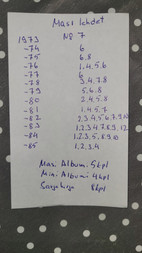 Masi lehdet
1973 N8 7
-74 6
-75 6.8
-76 1.4.5.6
-77 6
-78 3.4.7.8
-79 5.6.8
-80 2.4.5.8
-81 1.4.5.7
-82 2.3.4.5.6.7.9.10
-83 1.2.3.4.7.8.9.12
-84 1.2.3.5.8.9.10
-85 1.2.3.4
Masi Albumi 5kpl
Mini Albumi 4kpl
8kpl